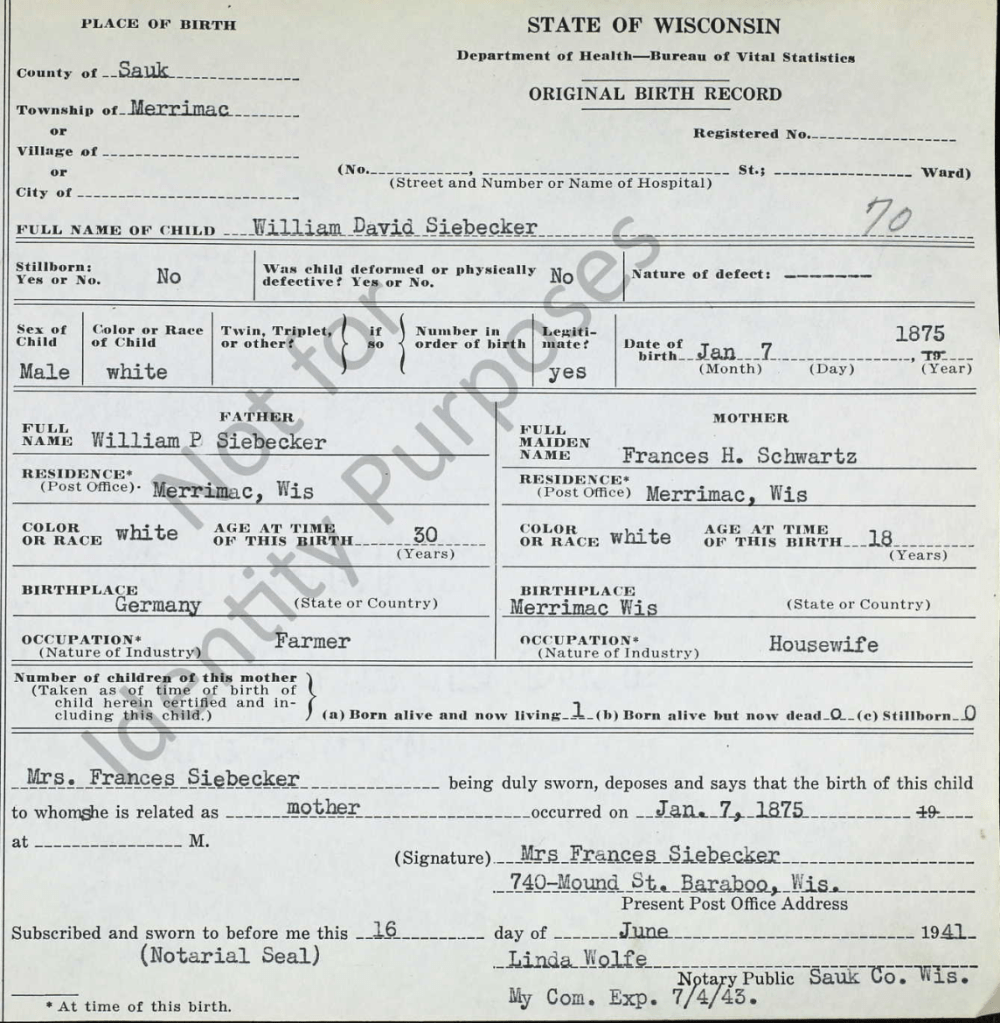 PLACE OF BIRTH
STATE OF WISCONSIN
Department of Health—Bureau of Vital Statistics
ORIGINAL BIRTH RECORD
County of Sauk
Township of Merrimac
or
Village of
or
City of
Registered No.
(No. , St.; Ward)
(Street and Number or Name of Hospital)
70
FULL NAME OF CHILD William David Siebecker
Stillborn: Yes or No. No
Was child deformed or physically defective? Yes or No. No
Nature of defect: -------
Sex of Child Male
Color or Race of Child white
Twin, Triplet, or other?
if so
Number in order of birth
Legiti-mate? yes
Date of birth Jan 7, 19 1875
(Month) (Day) (Year)
FATHER
FULL NAME William P Siebecker
RESIDENCE* (Post Office) Merrimac, Wis
COLOR OR RACE white AGE AT TIME OF THIS BIRTH 30 (Years)
BIRTHPLACE Germany (State or Country)
OCCUPATION* (Nature of Industry) Farmer
MOTHER
FULL MAIDEN NAME Frances H. Schwartz
RESIDENCE* (Post Office) Merrimac, Wis
COLOR OR RACE white AGE AT TIME OF THIS BIRTH 18 (Years)
BIRTHPLACE Merrimac Wis (State or Country)
OCCUPATION* (Nature of Industry) Housewife
Number of children of this mother
(Taken as of time of birth of
child herein certified and in-
cluding this child.)
(a) Born alive and now living 1 (b) Born alive but now dead 0 (c) Stillborn 0
Mrs. Frances Siebecker being duly sworn, deposes and says that the birth of this child
to whom she is related as mother occurred on Jan. 7, 1875 19
at M.
(Signature) Mrs Frances Siebecker
740-Mound St. Baraboo, Wis.
Present Post Office Address
Subscribed and sworn to before me this 16 day of June 1941
(Notarial Seal)
Linda Wolfe
Notary Public Sauk Co. Wis.
My Com. Exp. 7/4/43.
* At time of this birth.
Not for
Identity Purposes